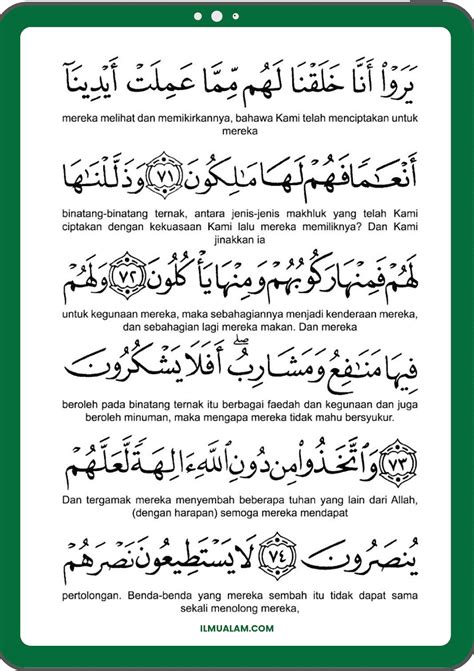 يَرَوْا۟ أَنَّا خَلَقْنَا لَهُم مِّمَّا عَمِلَتْ أَيْدِينَآ
mereka melihat dan memikirkannya, bahawa Kami telah menciptakan untuk
mereka
أَنْعَـٰمًا فَهُمْ لَهَا مَـٰلِكُونَ ٧١ وَذَلَّلْنَـٰهَا
binatang-binatang ternak, antara jenis-jenis makhluk yang telah Kami
ciptakan dengan kekuasaan Kami lalu mereka memiliknya? Dan Kami
jinakkan ia
لَهُمْ فَمِنْهَا رَكُوبُهُمْ وَمِنْهَا يَأْكُلُونَ ٧٢ وَلَهُمْ
untuk kegunaan mereka, maka sebahagiannya menjadi kenderaan mereka,
dan sebahagian lagi mereka makan. Dan mereka
فِيهَا مَنَـٰفِعُ وَمَشَارِبُ ۖ أَفَلَا يَشْكُرُونَ
beroleh pada binatang ternak itu berbagai faedah dan kegunaan dan juga
beroleh minuman, maka mengapa mereka tidak mahu bersyukur.
٧٣ وَٱتَّخَذُوا۟ مِن دُونِ ٱللَّهِ ءَالِهَةً لَّعَلَّهُمْ
Dan tergamak mereka menyembah beberapa tuhan yang lain dari Allah,
(dengan harapan) semoga mereka mendapat
يُنصَرُونَ ٧٤ لَا يَسْتَطِيعُونَ نَصْرَهُمْ
pertolongan. Benda-benda yang mereka sembah itu tidak dapat sama
sekali menolong mereka,
ILMUALAM.COM